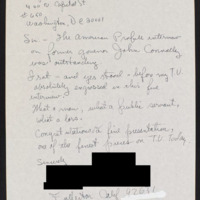 400 N. Capitol St
Washington, D C 20001
Sir - The American Profile interview
on former governor John Connally
was outstanding
I sat - and yes stood before my T.V.
absolutely engrossed in this
interview
What a man, what a public servant,
what a loss.
Congratulations fine presentation,
one of the finest pieces on T.V. Today
Sincerely
Fullerton Calif